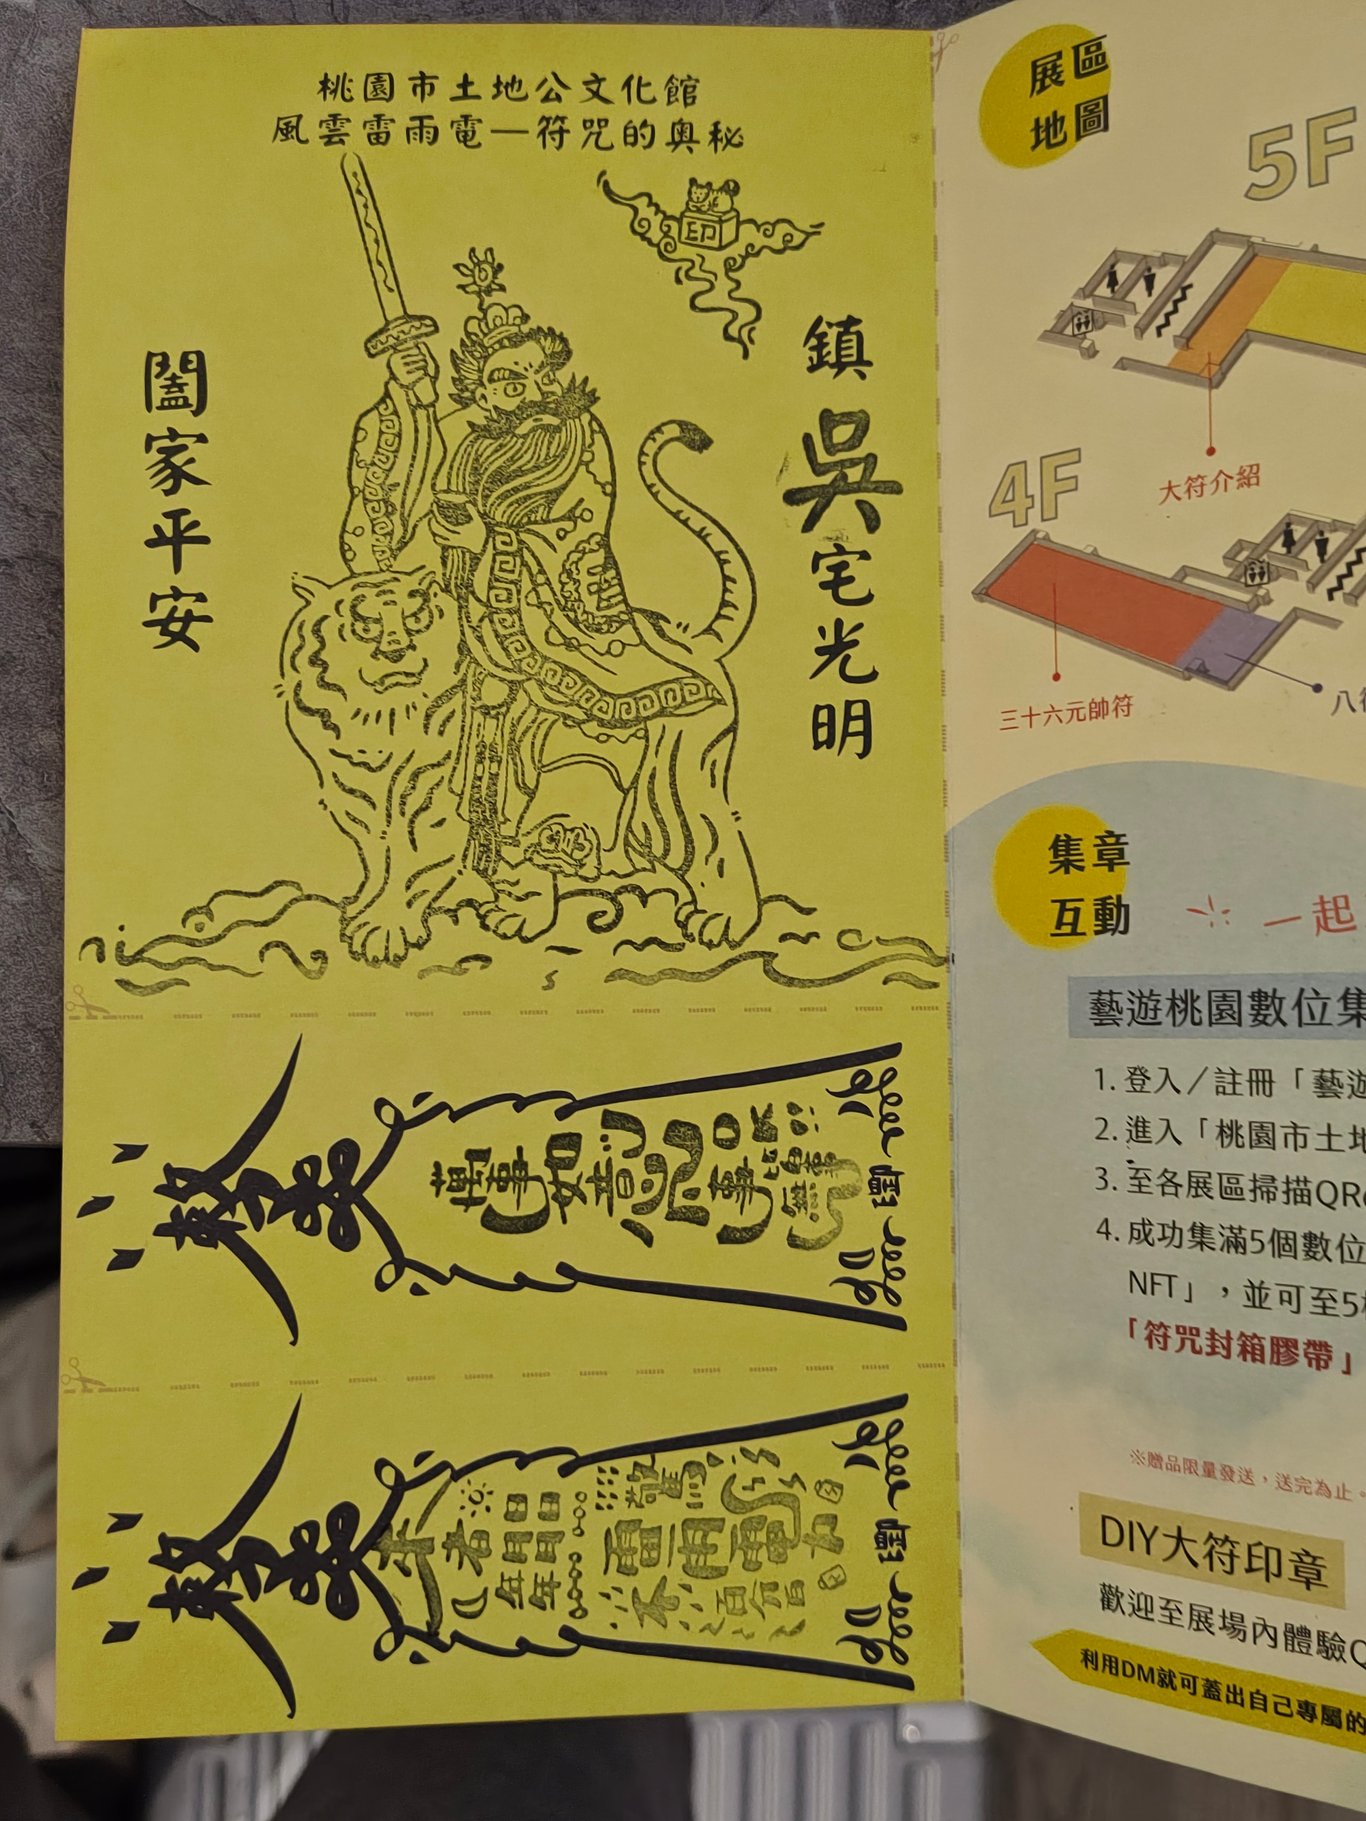 桃園市土地公文化館
風雲雷雨電—符咒的奧秘
印
鎮吳宅光明
闔家平安
敕令
萬事如意
敕令
雷
展區
地圖
5F
大符介紹
4F
三十六元帥符
集章
互動
一起
藝遊桃園數位集
1. 登入／註冊「藝遊
2. 進入「桃園市土地
3. 至各展區掃描QR
4. 成功集滿5個數位
NFT」，並可至5
「符咒封箱膠帶」
※贈品限量發送，送完為止。
DIY大符印章
歡迎至展場內體驗
利用DM就可蓋出自己專屬的